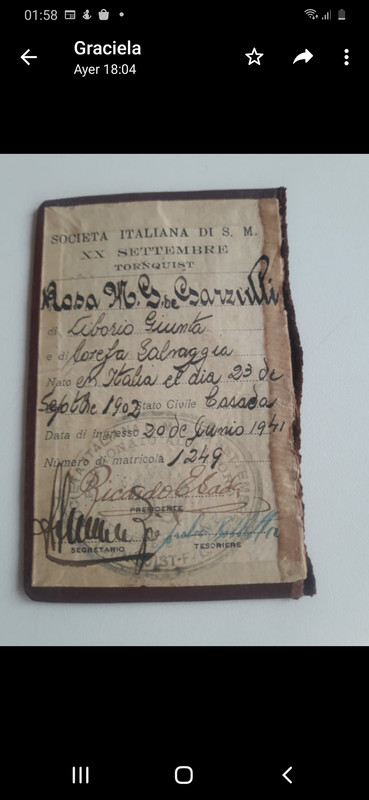 01:58
Graciela
Ayer 18:04
SOCIETA ITALIANA DI S. M.
XX SETTEMBRE
TORNQUIST
Rosa M. G. de Garzulli
di Liborio Giunta
e di Josefa Salvaggia
Nato en Italia el dia 23 de
Septbre 1902 Stato Civile Casada
Data di ingresso 20 de Junio 1941
Número di matricola 1249
Ricardo
PRESIDENTE
SEGRETARIO TESORIERE